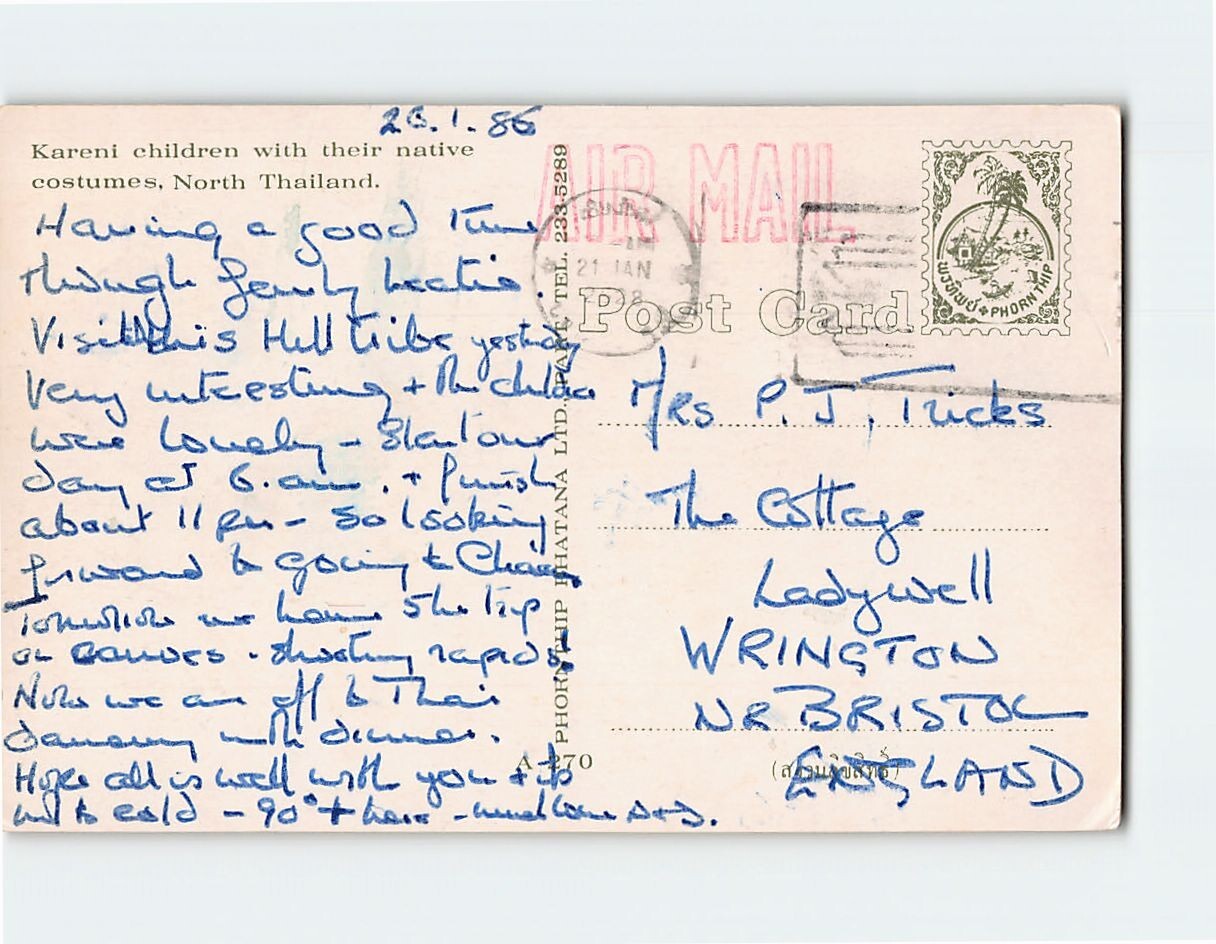 Kareni children with their native
costumes, North Thailand.
Having a good time
though fairly hectic.
Visited this Hill tribe yesterday
Very interesting + the children
were lovely - Start our
day at 6.am. + finish
about 11 pm - so looking
forward to going to
Tomorrow we have 5 hr trip
on canoes - shooting rapids!
Now we are off to Thai
dancing with dinner.
Hope all is well with you + its
not to cold - 90° + here - much love
AIR MAIL
21 JAN
Post Card
พรทิพย์ + PHORNTHIP
Mrs P. J. Tricks
The Cottage
Ladywell
WRINGTON
NR BRISTOL
ENGLAND
(สงวนลิขสิทธิ์)
A-270
PHORNTHIP PHATANA LTD., PART. TEL. 233-5289